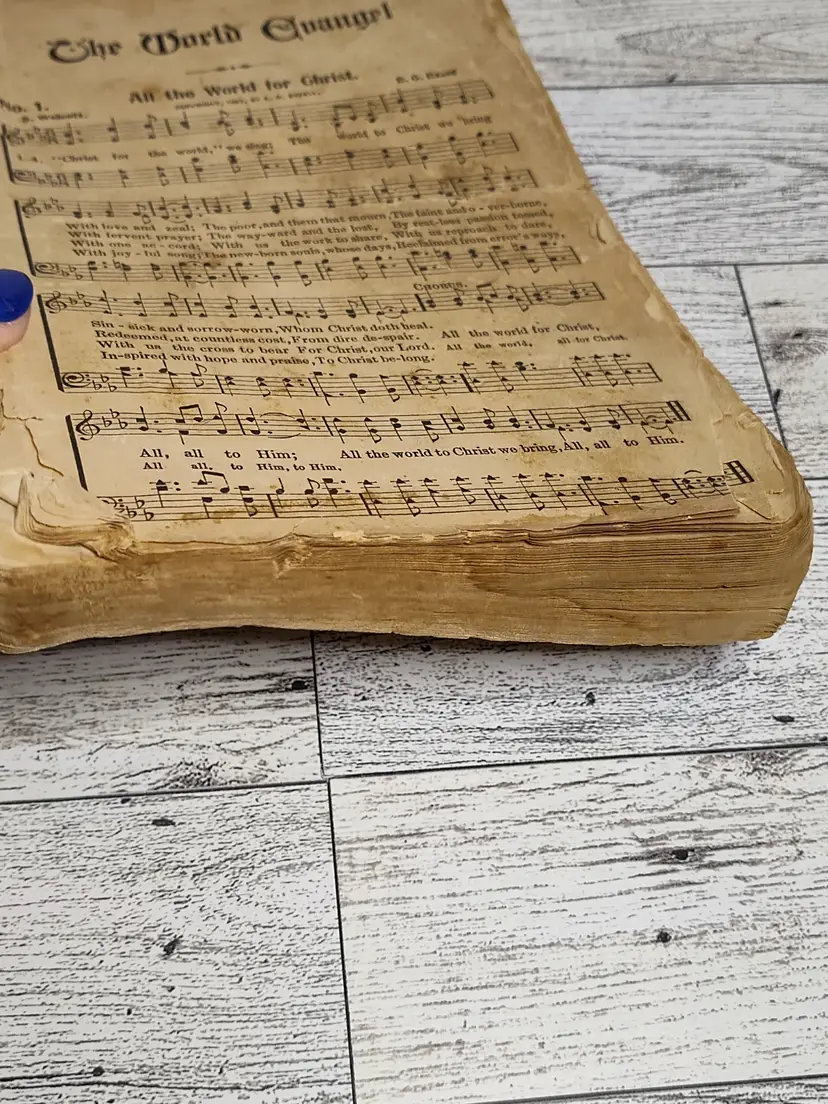 The World Evangel
All the World for Christ.
No. 1.
"Christ for the world," we sing; The world to Christ we bring
With love and zeal; The poor, and them that mourn, The faint and o - ver-borne,
With fervent prayer; The way-ward and the lost, By rest-less passion tossed,
With one ac - cord; With us the work to share, With us reproach to dare,
With joy - ful song; The new-born souls, whose days, Reclaimed from error's ways,
CHORUS.
Sin - sick and sorrow-worn, Whom Christ doth heal.
Redeemed, at countless cost, From dire de-spair. All the world for Christ,
With us the cross to bear For Christ, our Lord. All the world, all for Christ.
In-spired with hope and praise, To Christ be-long.
All, all to Him; All the world to Christ we bring, All, all to Him.
All all, to Him, to Him,